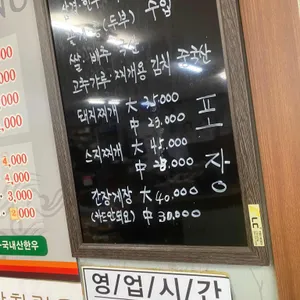 (두부) 수입
쌀·배추 국산
고추가루·찌개용 김치 중국산
돼지찌개 大 35.000
中 23.000
스지찌개 大 45.000
中 28.000
간장게장 大 40.000
(카드안되요) 中 30.000
포장
4,000
4,000
000
국내산한우
LC
영/업/시/간